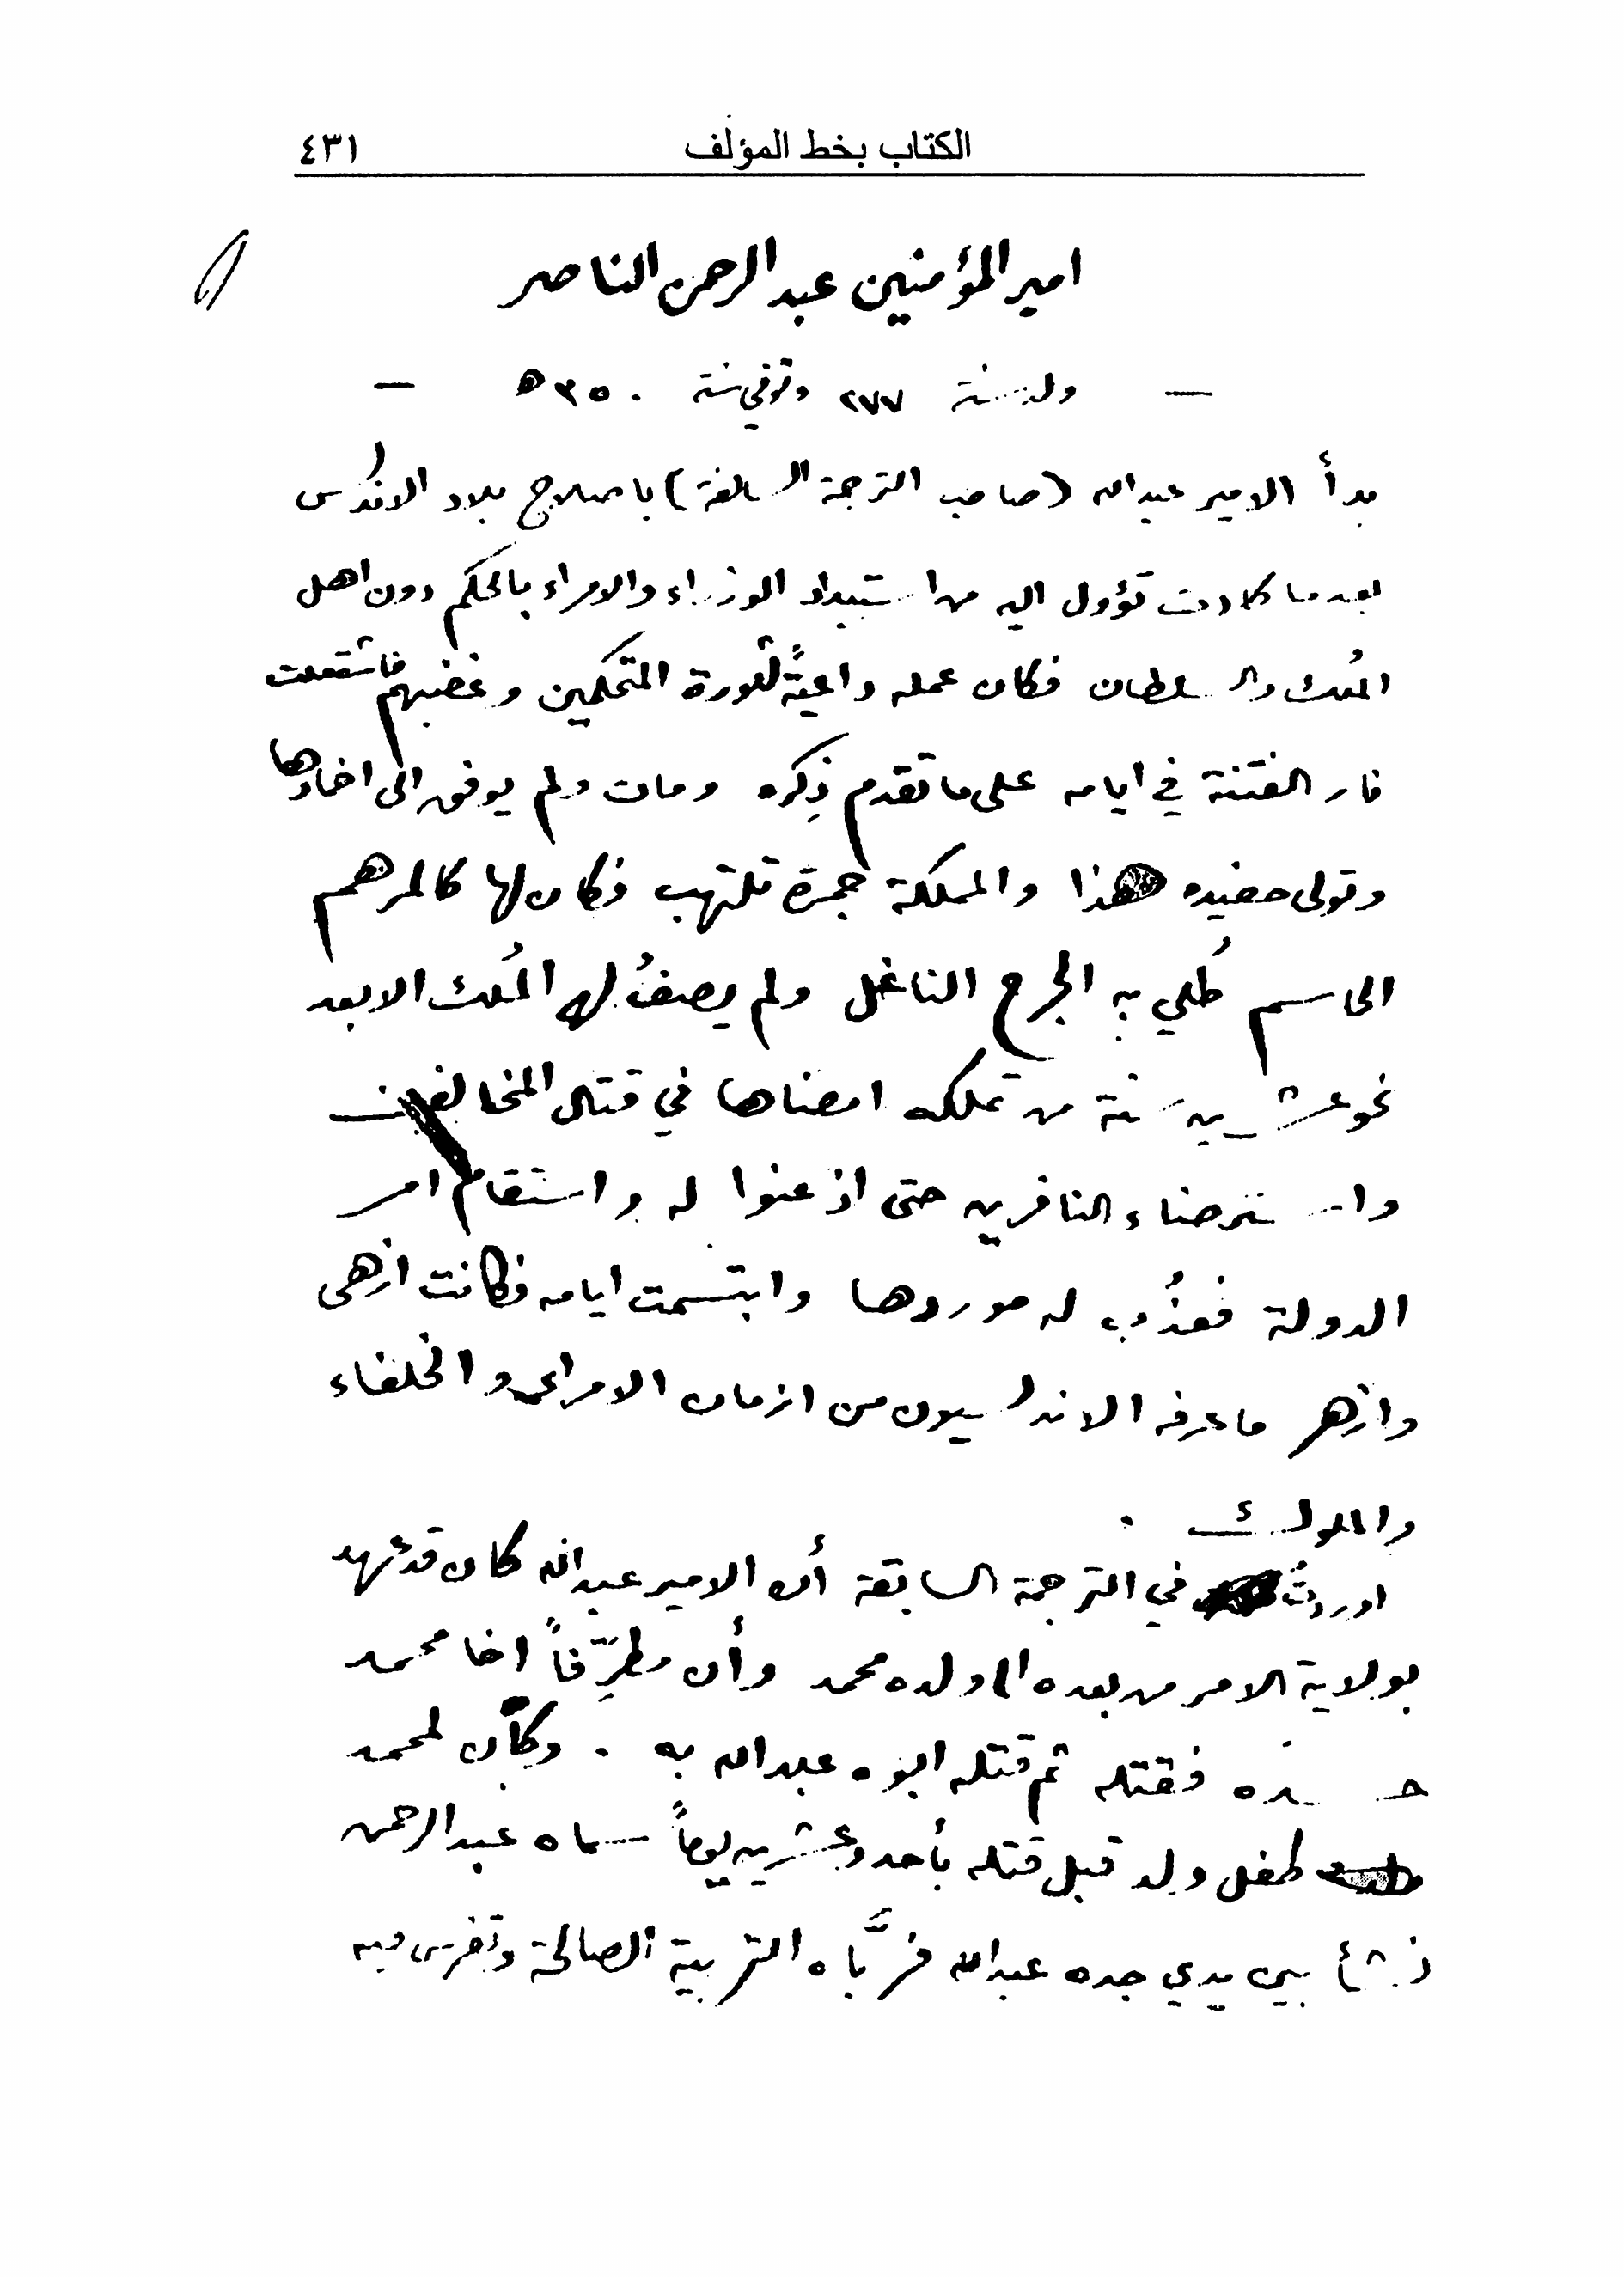 الكتاب بخط المؤلف ٤٣١
امير المؤمنين عبد الرحمن الناصر
— ولد سنة ٢٧٧ وتوفي سنة ٣٥٠ ھ —
بدأ الامير عبدالله (صاحب الترجمة السالفة) باصلاح بلاد الاندلس
بعد ما كادت تؤول اليه من استبداد الوزراء والامراء بالحكم دون اهل
المُلك والسلطان فكان عمله داعيةً لثورة المتحكمين وغضبهم فاشتعلت
نار الفتنة في ايامه على ما تقدم ذِكره ومات ولم يوفق الى اخمادها
وتولى حفيده هذا والمملكة جمرة تلتهب فكان لها كالمرهم
الحاسم طُلي به الجرح الناغل ولم يصفُ له المُلك الا بعد
نحو عشرين سنة من تملكه امضاها في قتال المخالفين
واسترضاء النافرين حتى اذعنوا له واستقام امر
الدولة فعذُب له موردها وابتسمت ايامه فكانت ازهى
وازهر ما عرفه الاندلسيون من ازمان الامراء والخلفاء
والملوك .
اوردتُ في الترجمة السابقة أن الامير عبدالله كان قد عهد
بولاية الامر من بعده الى ولده محمد وأن مطرِّفاً اخا محمد
حسده فقتله ثم قتله ابوه عبدالله به . وكان لمحمد
طفل ولد قبل قتله بأحد وعشرين يوماً سماه عبد الرحمن
فنشأ بين يدي جده عبدالله فربَّاه التربية الصالحة وتفرس فيه